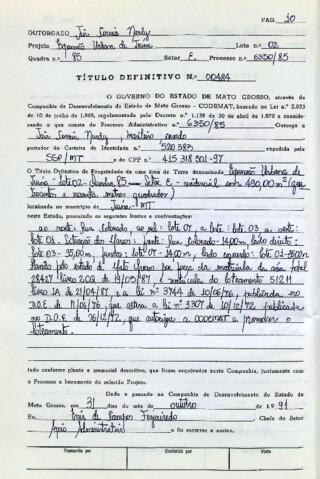 PAG. 10
OUTORGADO Jair Correia Nardy
Projeto Expansão Urbana de Juina Lote n.º 02
Quadra n.º 85 Setor E. Processo n.º 6350/85
TÍTULO DEFINITIVO N.º 00484
O GOVERNO DO ESTADO DE MATO GROSSO, através da
Companhia de Desenvolvimento do Estado de Mato Grosso - CODEMAT, baseado na Lei n.º 2.933
de 10 de junho de 1969, regulamentada pelo Decreto n.º 1.138 de 30 de abril de 1970 e considerando
o que consta do Processo Administrativo n.º 6350/85 Outorga a
Jair Correia Nardy, brasileiro casado
portador da Carteira de Identidade n.º 520385 expedida pela
SSP/MT e do CPF n.º 415 318 501-97
O Título Definitivo de Propriedade de uma área de Terra denominada Expansão Urbana de
Juina - lote 02 - Quadra 85 - Setor E - residencial com 490,00 m² (quatrocentos e noventa metros quadrados)
localizada no município de Juina - MT
neste Estado, possuindo os seguintes limites e confrontações:
ao norte: Rua Colorado, ao sul: lote 07, a leste: lote 03, a oeste:
lote 01. Situação dos Marcos: frente: Rua Colorado - 14,00m, lado direito:
lote 03 - 35,00m, fundos: lote 07 - 14,00m, lado esquerdo: lote 01 - 35,00m
28427 livro 2CQ de 19/05/87 e matrícula do loteamento 51211
livro 1A de 21/04/87, e a lei nº 3744 de 10/06/76, publicada no
D.O.E. de 11/06/76, que altera a lei nº 3307 de 10/12/72 publicada
no D.O.E. de 26/12/72, que autoriza a CODEMAT a promover o
loteamento.
tudo conforme planta e memorial descritivo, que ficam arquivados nesta Companhia, juntamente com
o Processo e loteamento do referido Projeto.
Dado e passado na Companhia de Desenvolvimento do Estado de
Mato Grosso, aos 31 dias do mês de outubro de 19 91
Eu, Inês de Campos Figueiredo Chefe do Setor
Apoio Administrativo o fiz escrever e assino.
Transcrito por Conferido por Visto